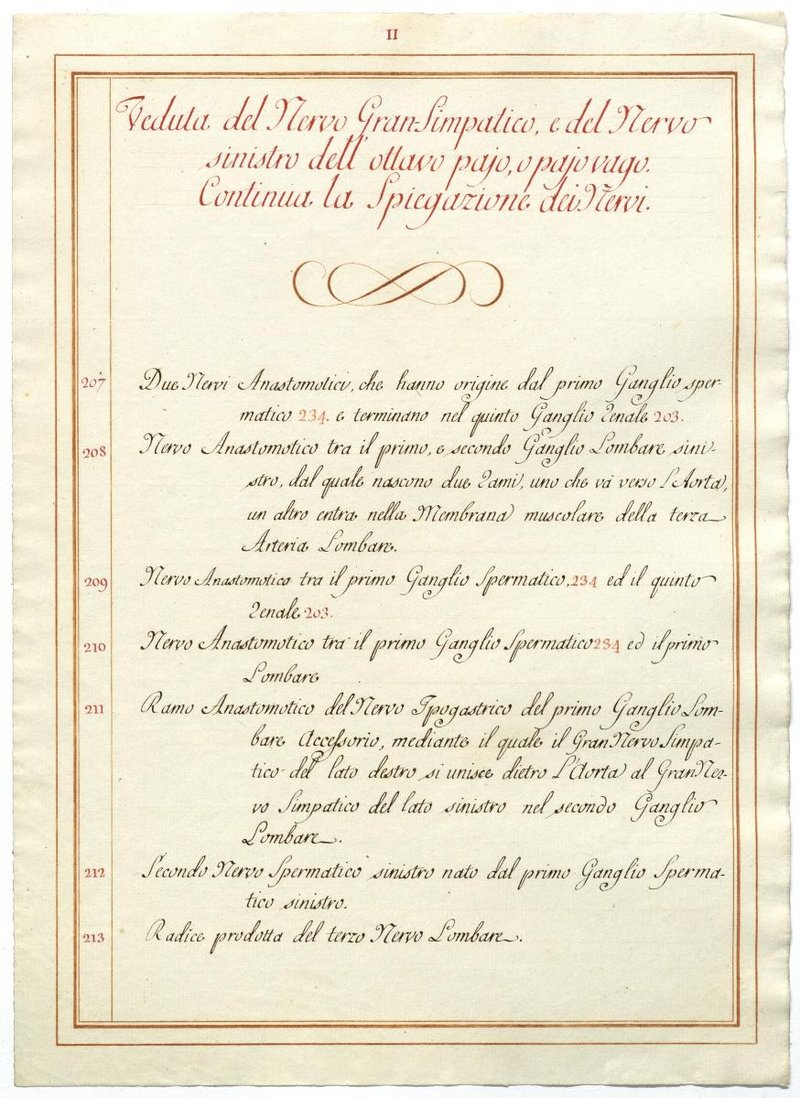 II
Veduta del Nervo Gran-Simpatico, e del Nervo
sinistro dell' ottavo pajo, o pajo vago.
Continua la Spiegazione dei Nervi.
207 Due Nervi Anastomotici, che hanno origine dal primo Ganglio sper-
matico 234. e terminano nel quinto Ganglio Renale 203.
208 Nervo Anastomotico tra il primo, e secondo Ganglio Lombare sini-
stro, dal quale nascono due Rami, uno che va verso l'Aorta,
un altro entra nella Membrana muscolare della terza
Arteria Lombare.
209 Nervo Anastomotico tra il primo Ganglio Spermatico, 234 ed il quinto
Renale 203.
210 Nervo Anastomotico tra il primo Ganglio Spermatico 234 ed il primo
Lombare
211 Ramo Anastomotico del Nervo Ipogastrico del primo Ganglio Lom-
bare Accessorio, mediante il quale il Gran Nervo Simpa-
tico del lato destro si unisce dietro l'Aorta al Gran Ner-
vo Simpatico del lato sinistro nel secondo Ganglio
Lombare.
212 Secondo Nervo Spermatico sinistro nato dal primo Ganglio Sperma-
tico sinistro.
213 Radice prodotta del terzo Nervo Lombare.